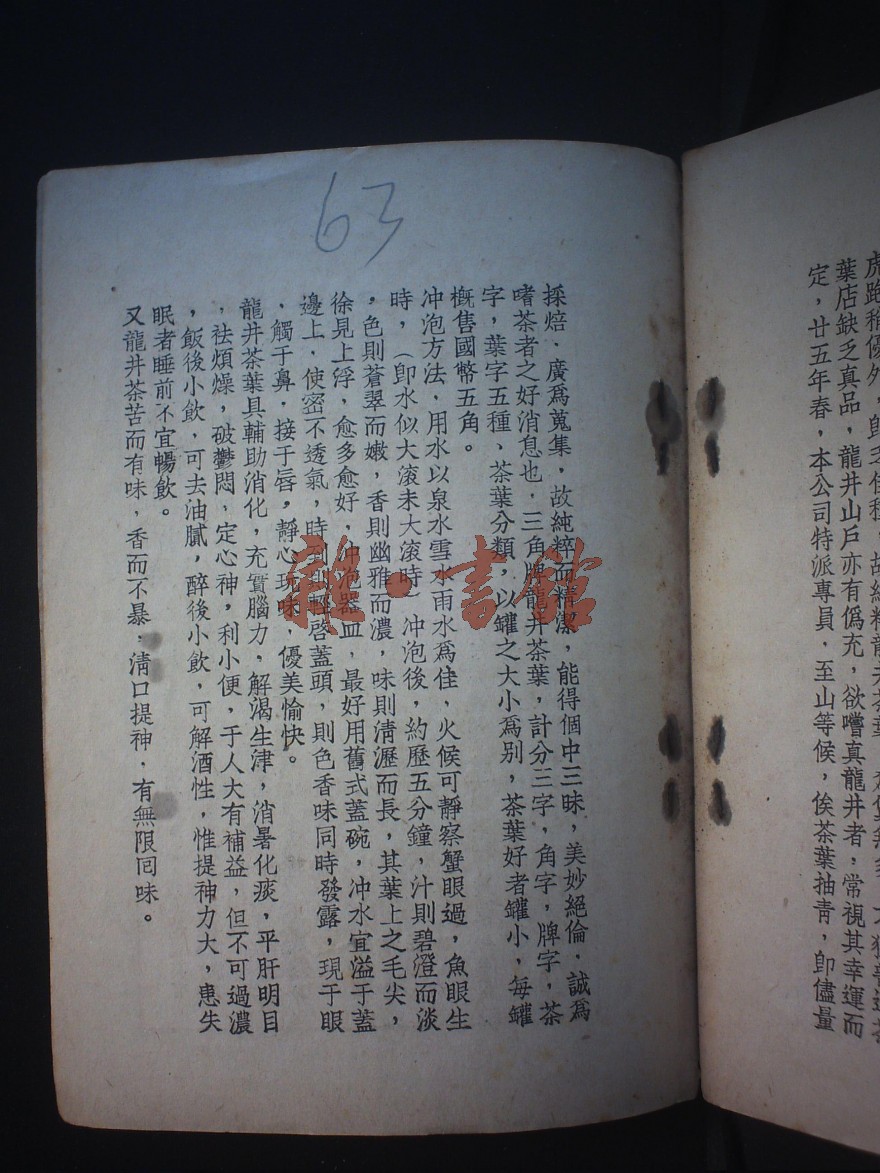 虎跑稍優外，
葉店缺乏真品，龍井山戶亦有僞充，欲嚐真龍井者，常視其幸運而
定，廿五年春，本公司特派專員，至山等候，俟茶葉抽青，卽儘量
63
採焙，廣爲蒐集，故純粹而精潔，能得個中三昧，美妙絕倫，誠爲
嗜茶者之好消息也，三角牌龍井茶葉，計分三字，角字，牌字，茶
字，葉字五種，茶葉分類，以罐之大小爲別，茶葉好者罐小，每罐
槪售國幣五角。
冲泡方法，用水以泉水雪水雨水爲佳，火候可靜察蟹眼過，魚眼生
時，（卽水似大滾未大滾時）冲泡後，約歷五分鐘，汁則碧澄而淡
，色則蒼翠而嫩，香則幽雅而濃，味則淸瀝而長，其葉上之毛尖，
徐見上浮，愈多愈好，冲泡器皿，最好用舊式蓋碗，冲水宜溢于蓋
邊上，使密不透氣，時到則輕啓蓋頭，則色香味同時發露，現于眼
，觸于鼻，接于唇，靜心玩味，優美愉快。
龍井茶葉具輔助消化，充實腦力，解渴生津，消暑化痰，平肝明目
，祛煩燥，破鬱悶，定心神，利小便，于人大有補益，但不可過濃
，飯後小飲，可去油膩，醉後小飲，可解酒性，惟提神力大，患失
眠者睡前不宜暢飲。
又龍井茶苦而有味，香而不暴，淸口提神，有無限囘味。
雜·書館